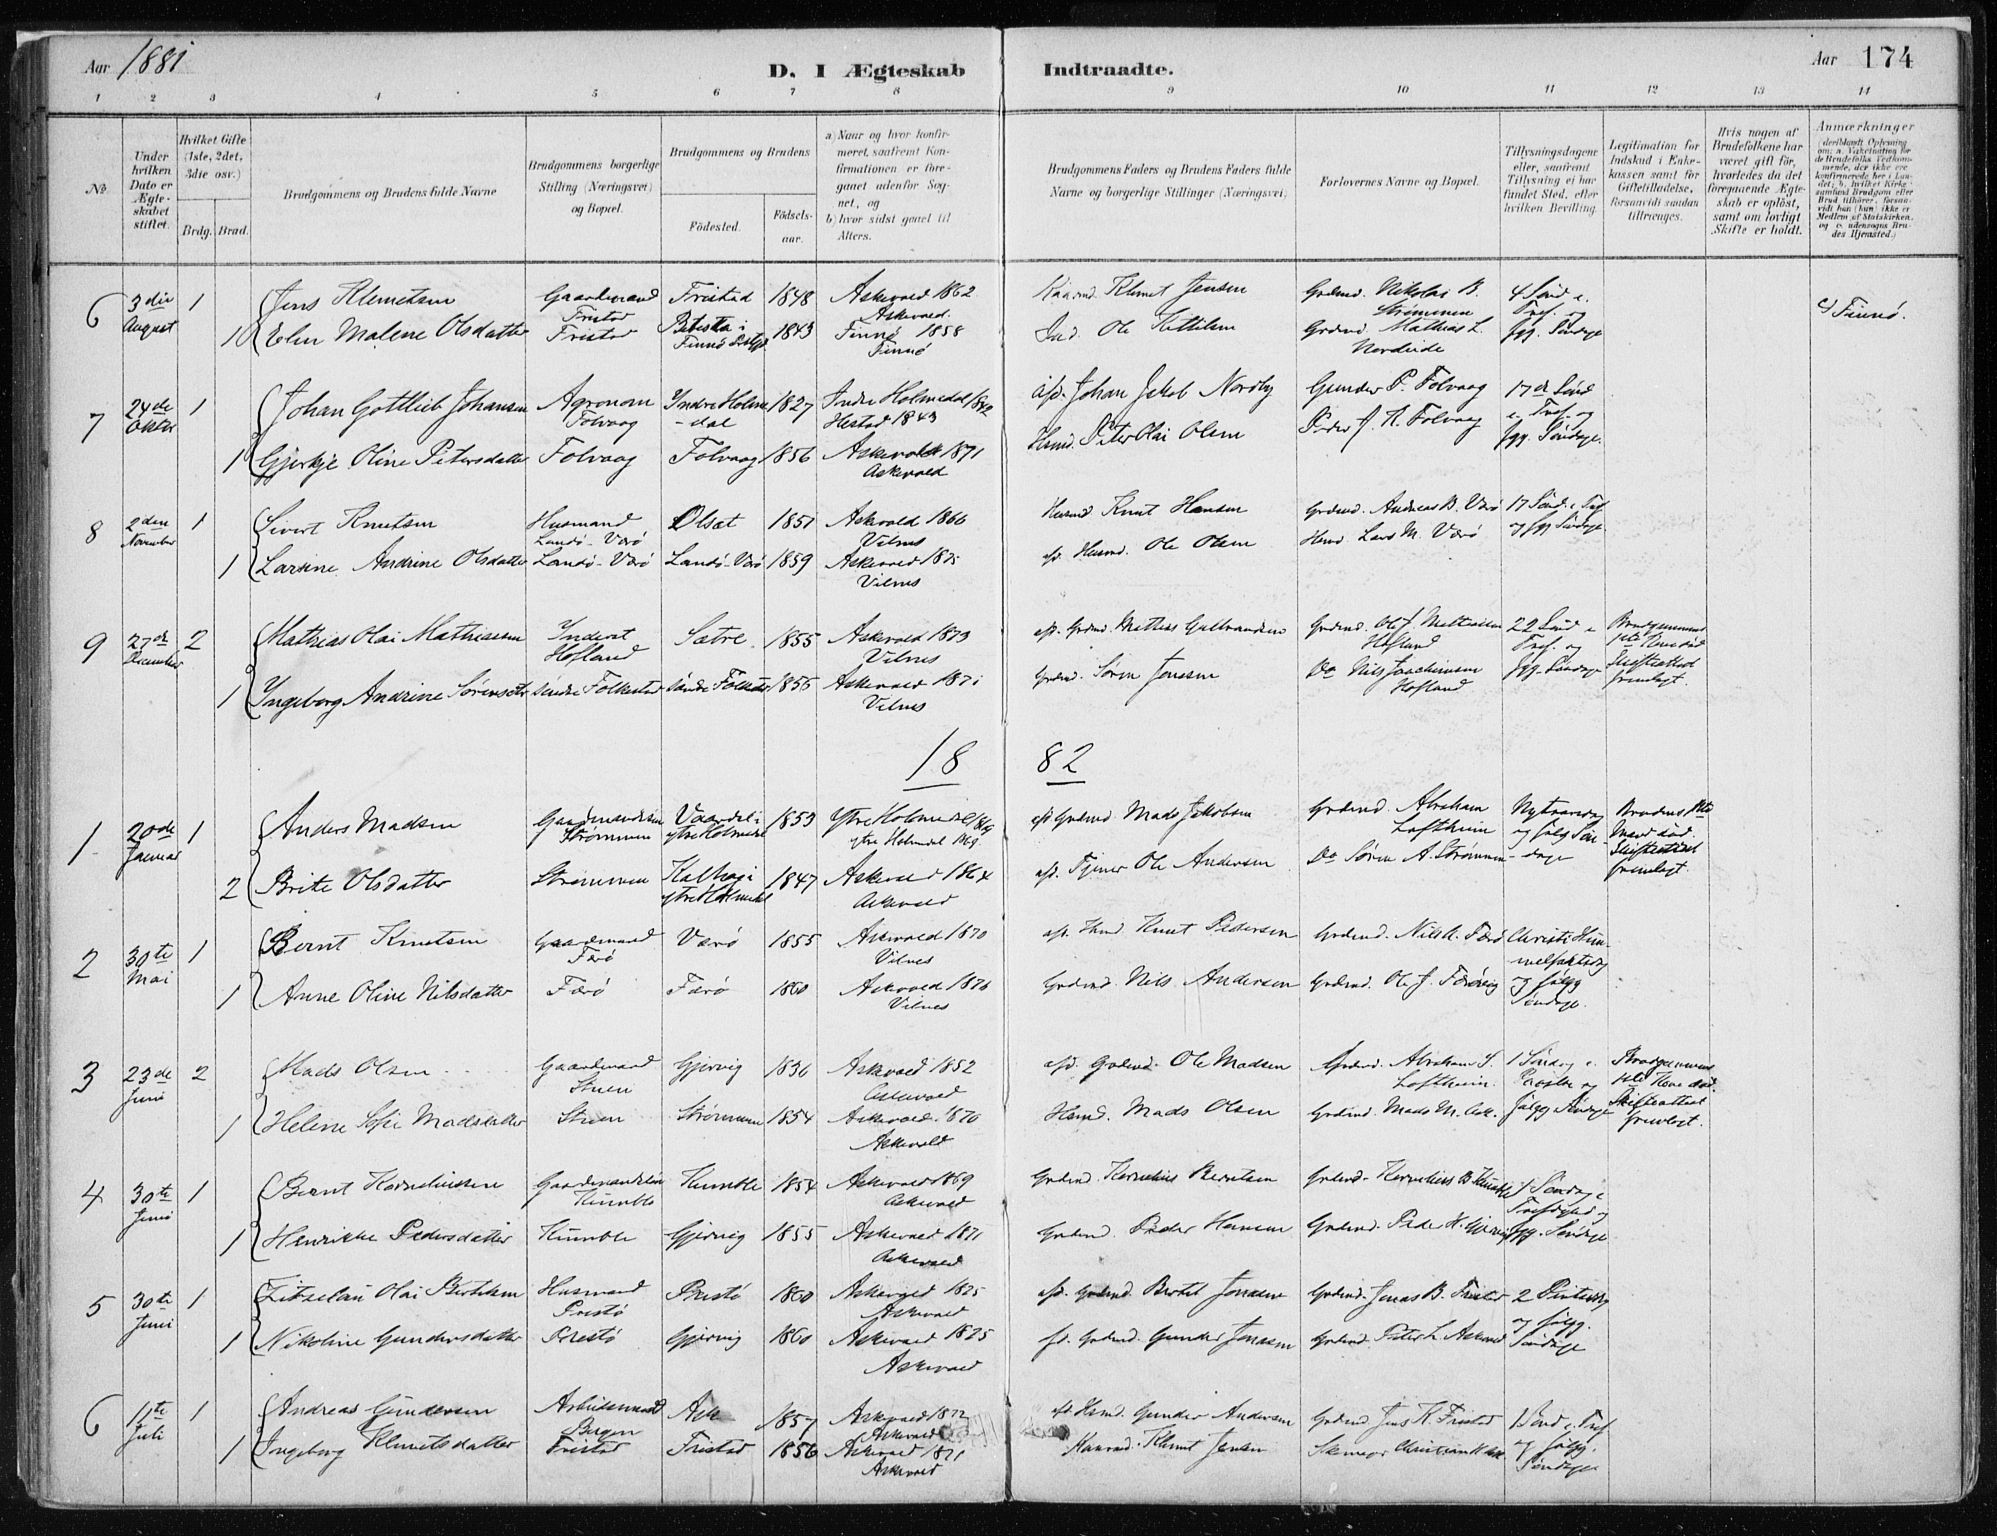 Aar 1881
D. I Ægteskab Indtraadte.
Aar 174
1 2 3 4 5 6 7 8 9 10 11 12 13 14
No
Under hvilken Dato er Ægteskabet stiftet.
Hvilket Gifte (1ste, 2det, 3die osv.)
Brdg. Brud.
Brudgommens og Brudens fulde Navne
Brudgommens borgerlige Stilling (Næringsvei) og Bopæl.
Brudgommens og Brudens
Fødested.
Fødselsaar.
a) Naar og hvor konfirmeret, saafremt Konfirmationen er foregaaet udenfor Sognet, og
b) hvor sidst gaaet til Alters.
Brudgommens Faders og Brudens Faders fulde Navne og borgerlige Stillinger (Næringsvei)
Forlovernes Navne og Bopæl.
Tillysningsdagene eller, saafremt Tillysning ei har fundet Sted, efter hvilken Bevilling.
Legitimation for Indskud i Enkekassen samt for Giftetilladelse, forsaavidt saadan tiltrænges.
Hvis nogen af Brudefolkene har været gift før, hvorledes da det foregaaende Ægteskab er opløst, samt om lovligt Skifte er holdt.
Anmærkninger
6 3die August 1 Jens Klemetsen Gaardmand Fristad Fristad 1848 Askevold 1862 Askevold. Klemet Jensen Grdmd. Nikolai B. Strømmen 4 Sønd e. Tref. og
1 Elen Malene Olsdatter Fristad Finnø 1843 Finnø 1858 Finnø Ole Kittilsen Grdmd. Mathias L. Nordeide fgg. Søndage c) Finnø.
7 24de Oktbr 1 Johan Gottlieb Johansen Agronom Folvaag Indre Holmedal 1827 Indre Holmedal 1842 Hestad 1843 afd. Johan Jakob Nordby Gunder P. Folvaag 17de Sønd e. Tref. og
1 Gjertje Oline Petersdatter Folvaag Folvaag 1856 Askevold 1871 Askevold Husmd. Peter Olai Olsen Peder J. A. Folvaag fgg. Søndage.
8 2den November 1 Sivert Knutsen Husmand Landø-Værø Olset 1851 Askevold 1866 Vilnes Husmd Knut Hansen Grdmd. Andreas B. Værø 17 Sønd. e Tref
1 Larsine Andrine Olsdatter Landø-Værø Landø-Værø 1859 Askevold 1875 Vilnes afd. Husmd. Ole Olsen Lars M. Værø og fgg Søndage.
9 27de December 2 Mathias Olai Mathiesen Inderst Hofland Sætre 1855 Askevold 1873 Vilnes afd. Grdmd. Mathias Gulbrandsen Grdmd. Ole J. Mathiesen Hofland 22 Sønd e Tref. og Brudgommens
1 Ingeborg Andrine Sørensdtr søndre Folkestad søndre Folkestad 1855 Askevold 1871 Vilnes Grdmd. Søren Jonssen Do Nils Joachimsen Hofland fgg. Søndage Skifteattest fremlagt.
1882
1 20de Januar 1 Anders Madsen Gaardmandssøn Strømmen Vaardal i ytre Holmedal 1853 Ytre Holmedal 1869 ytre Holmedal 1869. afd Grdmd. Mads Jakobsen Grdmd. Abraham Loftheim Nytaarsdag og følg Søndage Brudens 1ste Mand død. Skifteattest fremlagt.
2 Brite Olsdatter Strømmen ytre Holmedal 1847 Askevold 1864 Askevold afd. Tjener Ole Andersen Do Søren A. Strømmen
2 30te Mai 1 Bernt Knutsen Gaardmand Færø Værø 1855 Askevold 1870 Vilnes afd. Husmd Knut Pedersen Grdmd. Nils A. Færø Christi Himmelfartsdag
1 Anne Oline Nilsdatter Færø Færø 1860 Askevold 1876 Vilnes Grdmd. Nils Andersen Grdmd. Ole J. og følgg Søndage.
3 23de Juni 2 Mads Olsen Gaardmand Stuen Gjervig 1836 Askevold 1852 Askevold afd. Grdmd. Ole Madsen Grdmd. Abraham S. Loftheim. 1 Søndag e. Paaske og Brudgommens 1ste Kone død.
1 Helene Sofie Madsdatter Stuen Strømmen 1854 Askevold 1870 Askevold Husmd. Mads Olsen Grdmd. Mads M. Ask. følgg Søndage Skifteattest fremlagt.
4 30te Juni 1 Bernt Korneliussen Gaardmandssøn Humble Humble 1854 Askevold 1869 Askevold Grdmd. Kornelius Berntsen Grdmd. Kornelius B Humble 1 Søndag e Trefoldighed og
1 Henrikke Pedersdatter Humble Gjervig 1855 Askevold 1871 Askevold Grdmd. Peder Hansen Grdmd. Peder H. Gjervig fgg. Søndage.
5 30te Juni 1 Olai Bertelsen Husmand Prestø Prestø 1860 Askevold 1875 Askevold afd. Grdmd. Bertel Jonssen Grdmd. Jonas B. Fristad 2 Pintsedag og følgg.
1 Nikoline Gundersdatter Prestø Gjervig 1860 Askevold 1875 Askevold fd. Grdmd. Gunder Jonassen Grdmd. Peter L. Askevold Søndage
6 11te Juli 1 Andreas Gundersen Arbeidsmand Bergen Ask 1857 Askevold 1872 Askevold afd. Husmd. Gunder Andersen Grdmd Jens K. Fristad 1 Sønd e. Tref
1 Ingeborg Klemetsdatter Fristad Fristad 1856 Askevold 1871 Askevold Klemet Jensen Skomager Christian og følgg. Søndage